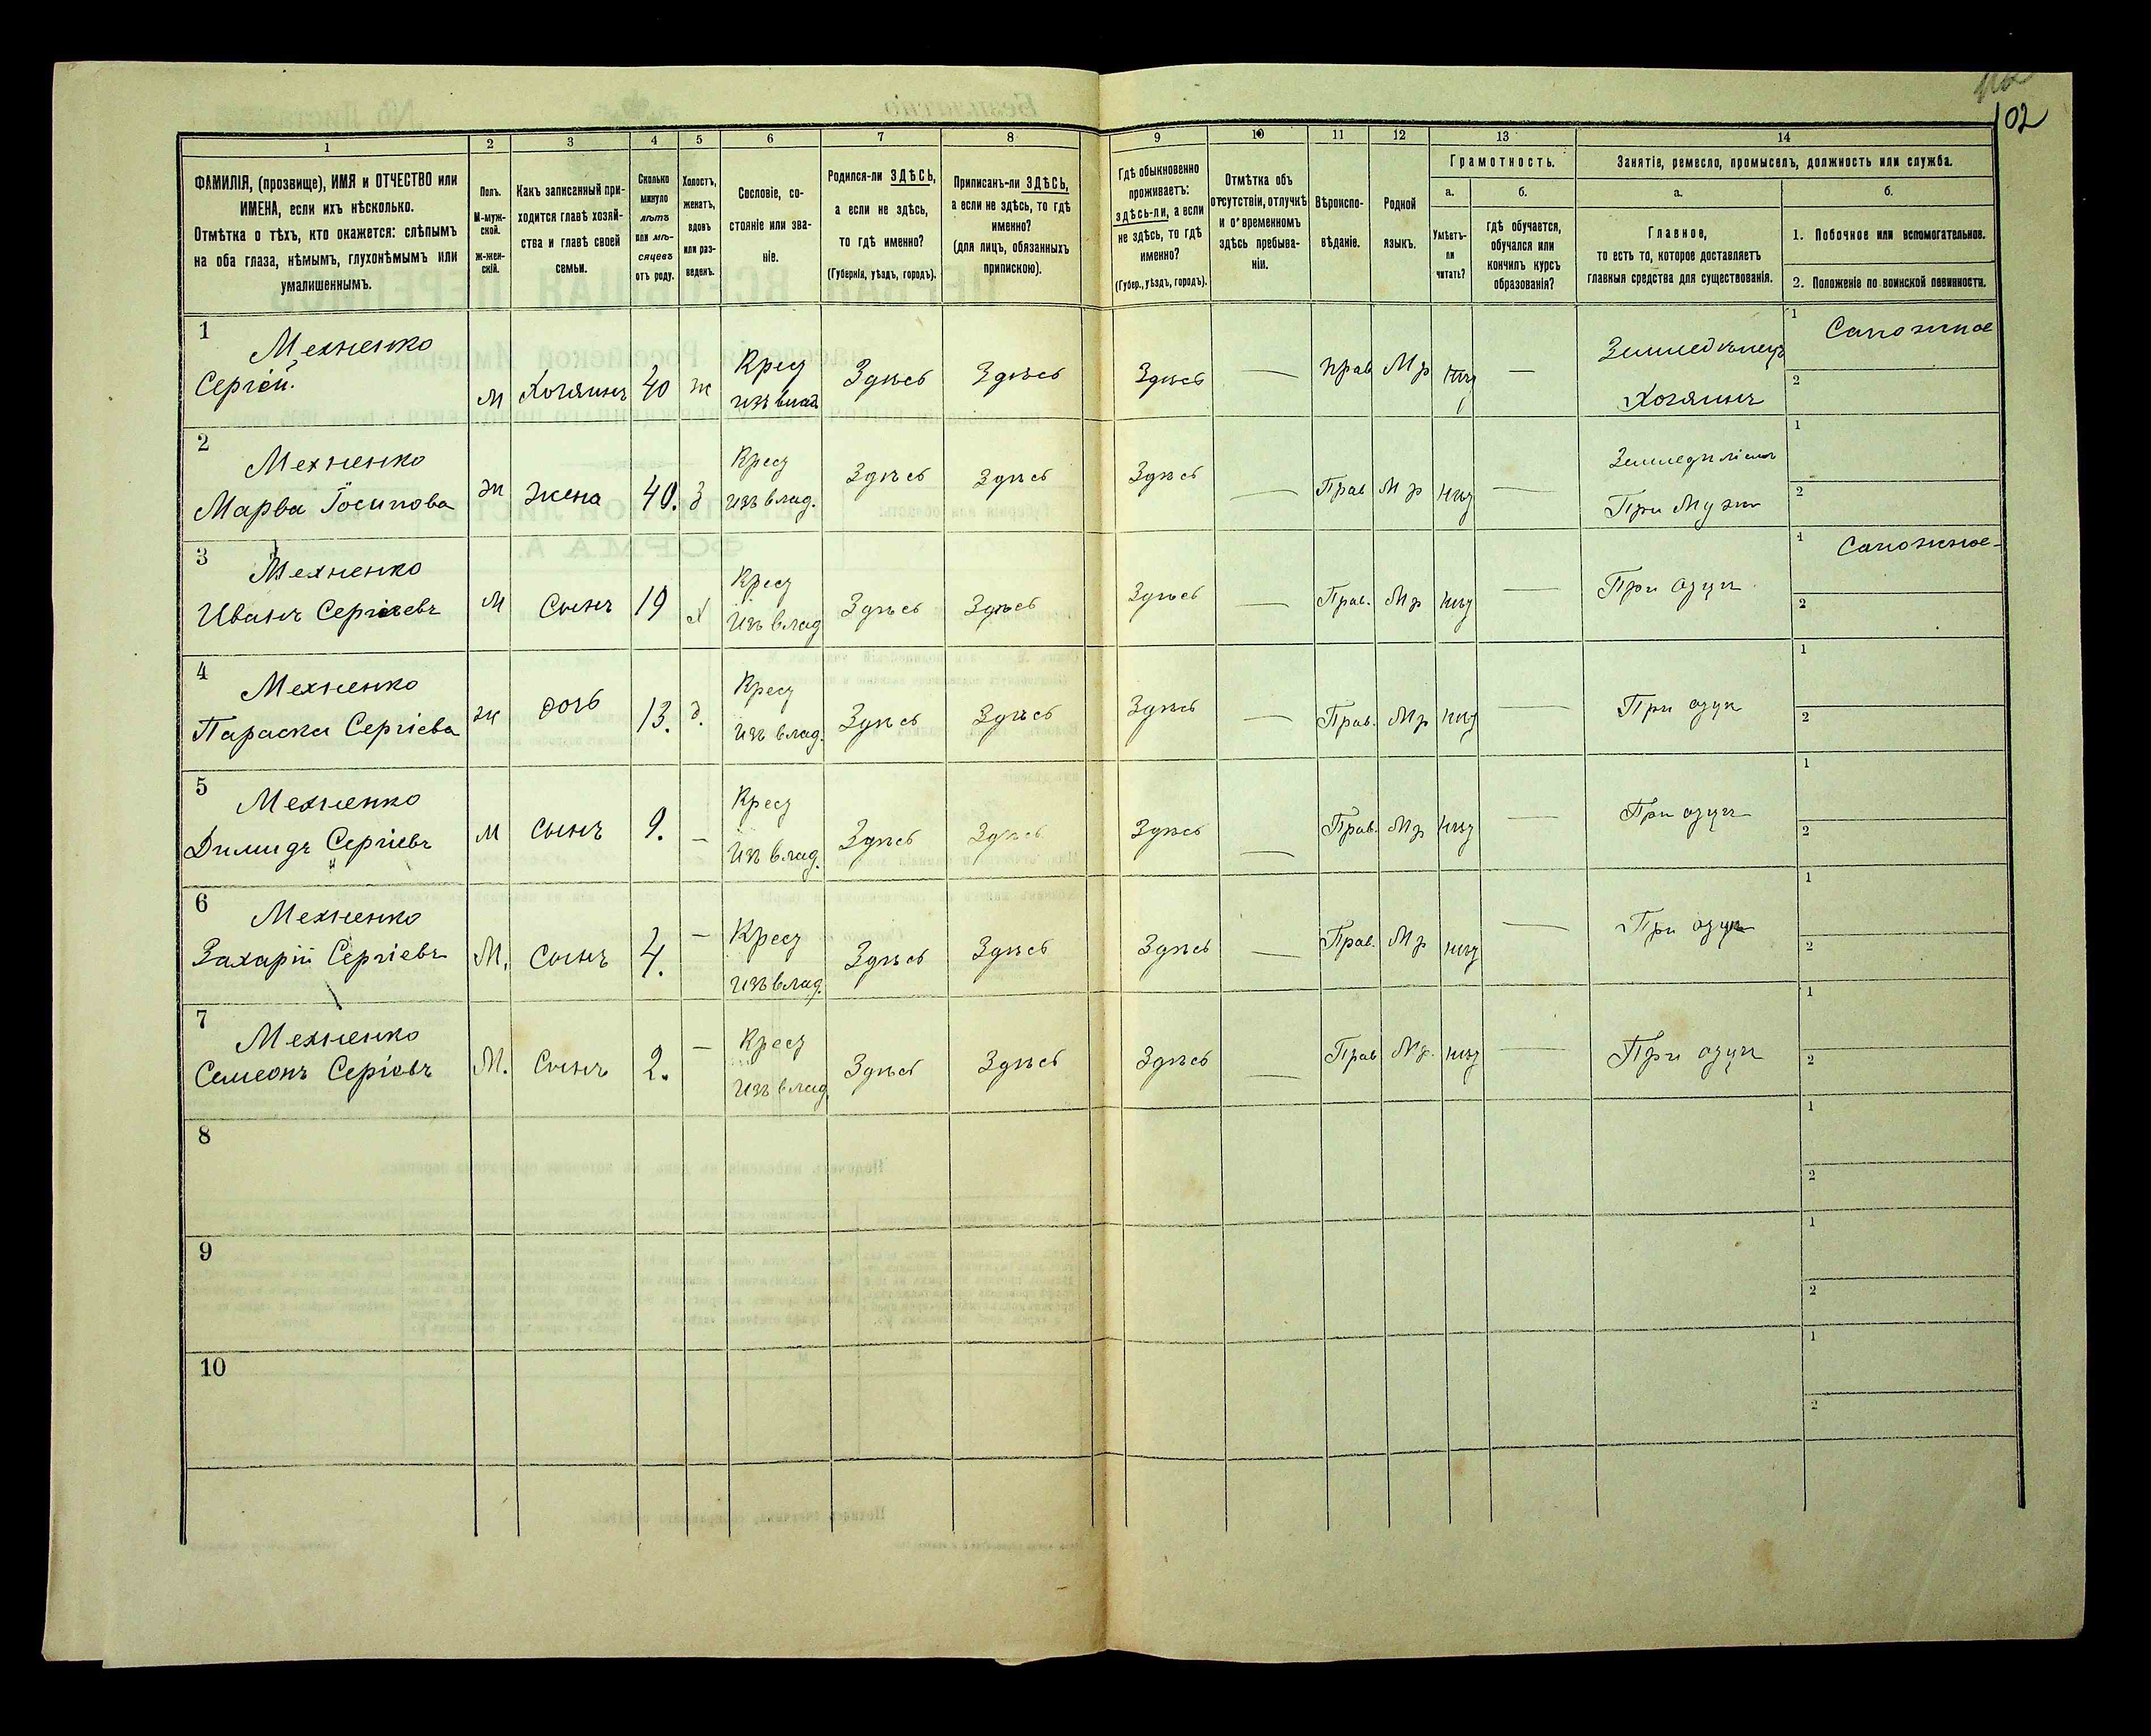 102
1
2
3
4
5
6
7
8
9
10
11
12
13
14
ФАМИЛІЯ, (прозвище), ИМЯ и ОТЧЕСТВО или
ИМЕНА, если ихъ нѣсколько.
Отмѣтка о тѣхъ, кто окажется: слѣпымъ
на оба глаза, нѣмымъ, глухонѣмымъ или
умалишеннымъ.
Полъ.
М-муж-
ской.
Ж-жен-
скій.
Какъ записанный при-
ходится главѣ хозяй-
ства и главѣ своей
семьи.
Сколько
минуло
лѣтъ
или мѣ-
сяцевъ
отъ роду.
Холостъ,
женатъ,
вдовъ
или раз-
веденъ.
Сословіе, со-
стояніе или зва-
ніе.
Родился-ли ЗДѢСЬ,
а если не здѣсь,
то гдѣ именно?
(Губернія, уѣздъ, городъ).
Приписанъ-ли ЗДѢСЬ,
а если не здѣсь, то гдѣ
именно?
(для лицъ, обязанныхъ
припискою).
Гдѣ обыкновенно
проживаетъ:
здѣсь-ли, а если
не здѣсь, то гдѣ
именно?
(Губер., уѣздъ, городъ).
Отмѣтка объ
отсутствіи, отлучкѣ
и о временномъ
здѣсь пребыва-
ніи.
Вѣроиспо-
вѣданіе.
Родной
языкъ.
Грамотность.
а.
Умѣетъ-
ли
читать?
б.
Гдѣ обучается,
обучался или
кончилъ курсъ
образованія?
Занятіе, ремесло, промыселъ, должность или служба.
а.
Главное,
то есть то, которое доставляетъ
главныя средства для существованія.
б.
1. Побочное или вспомогательное.
2. Положеніе по воинской повинности.
1
Мехненко
Сергій.
М Хозяинъ 40 ж
Крес
изъ влад
Здѣсь Здѣсь Здѣсь — прав Мр нѣт —
Земледѣлецъ
Хозяинъ
1 Сапожное
2
2
Мехненко
Марва Іосипова
Ж Жена 40. З
Крес
изъ влад.
Здѣсь Здѣсь Здѣсь — Прав Мр нѣт —
При Мужи
1
2
3
Мехненко
Иванъ Сергіевъ
М Сынъ 19 Х
Крес
Изъ влад
Здѣсь Здѣсь Здѣсь — Прав. Мр нѣт —
При отци
1 Сапожное
2
4
Мехненко
Параска Сергіева
Ж дочь 13. д.
Крес
изъ влад.
Здѣсь Здѣсь Здѣсь — Прав. Мр нѣт —
При отци
1
2
5
Мехненко
Димидъ Сергіевъ
М Сынъ 9. —
Крес
Изъ влад.
Здѣсь Здѣсь Здѣсь — Прав. Мр нѣт —
При отци
1
2
6
Мехненко
Захарій Сергіевъ
М. Сынъ 4. —
Крес
изъ влад.
Здѣсь Здѣсь Здѣсь — Прав. Мр нѣт —
При отци
1
2
7
Мехненко
Семеонъ Серіовъ
М. Сынъ 2. —
Крес
Изъ влад
Здѣсь Здѣсь Здѣсь — Прав Мр. нѣт —
При отци
1
2
8
1
2
9
1
2
10
1
2